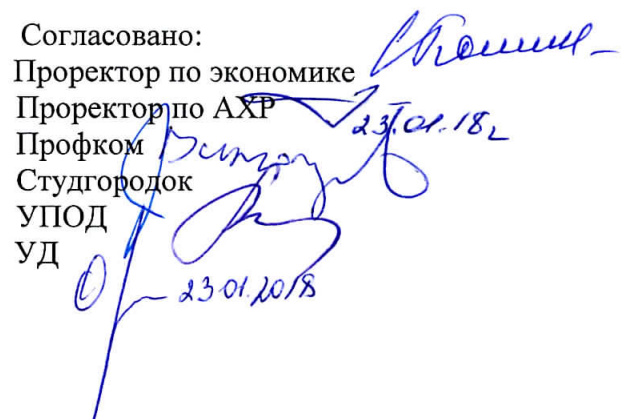 Согласовано:
Проректор по экономике
Проректор по АХР
23.01.18г
Профком
Студгородок
УПОД
УД
23.01.2018